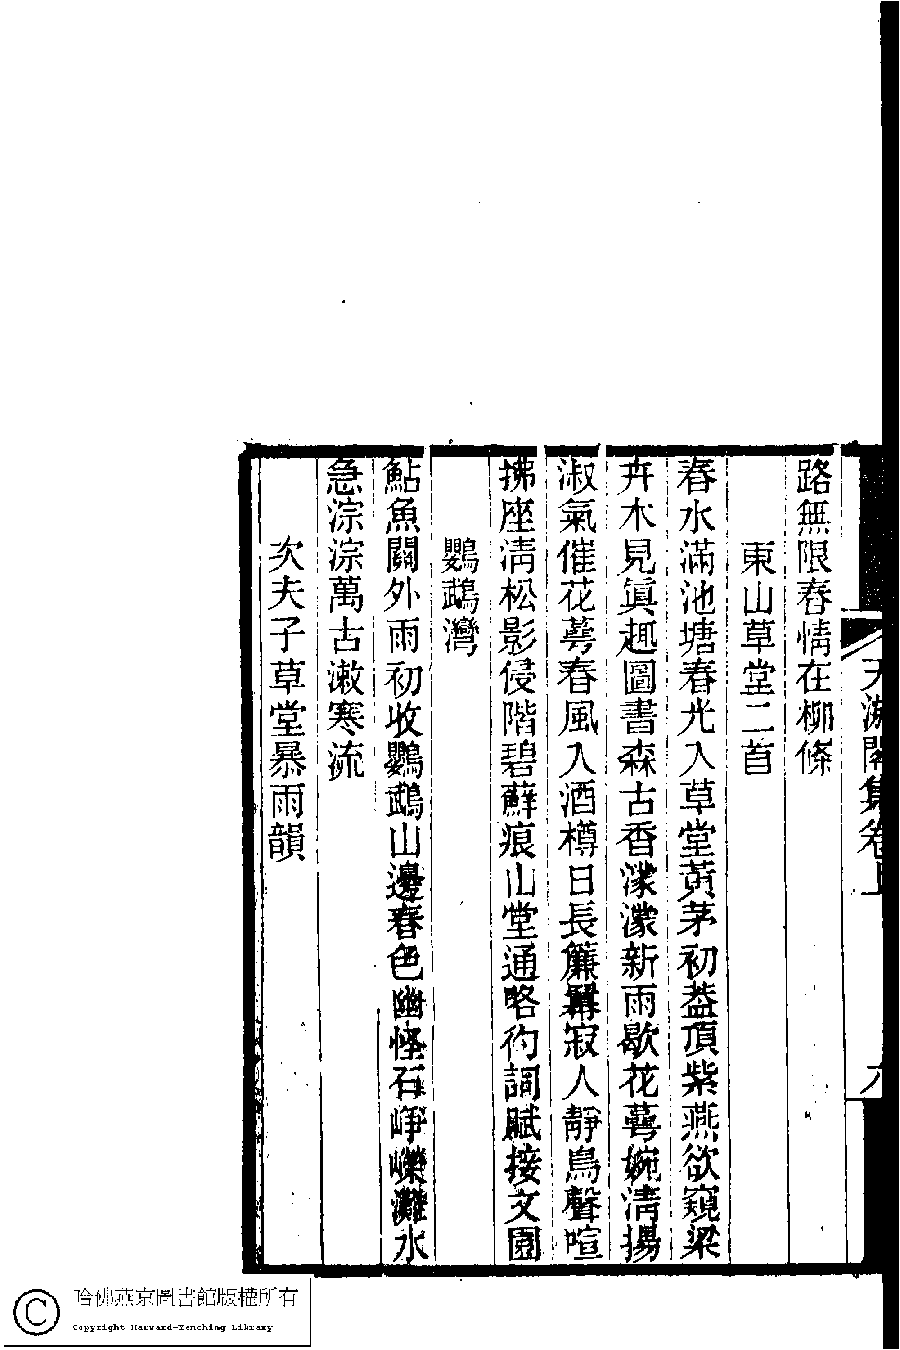 天游閣集卷上 六
路無限春情在柳條
東山草堂二首
春水滿池塘春光入草堂黃茅初葢頂紫燕欲窺梁
卉木見眞趣圖書森古香濛濛新雨歇花萼婉清揚
淑氣催花萼春風入酒樽日長簾羃寂人靜鳥聲喧
拂座清松影侵階碧蘚痕山堂通略彴詞賦接文園
鸚鵡灣
鮎魚關外雨初收鸚鵡山邊春色幽怪石崢嶸灘水
急淙淙萬古漱寒流
次夫子草堂暴雨韻
哈佛燕京圖書館版權所有
Copyright Harvard-Yenching Library